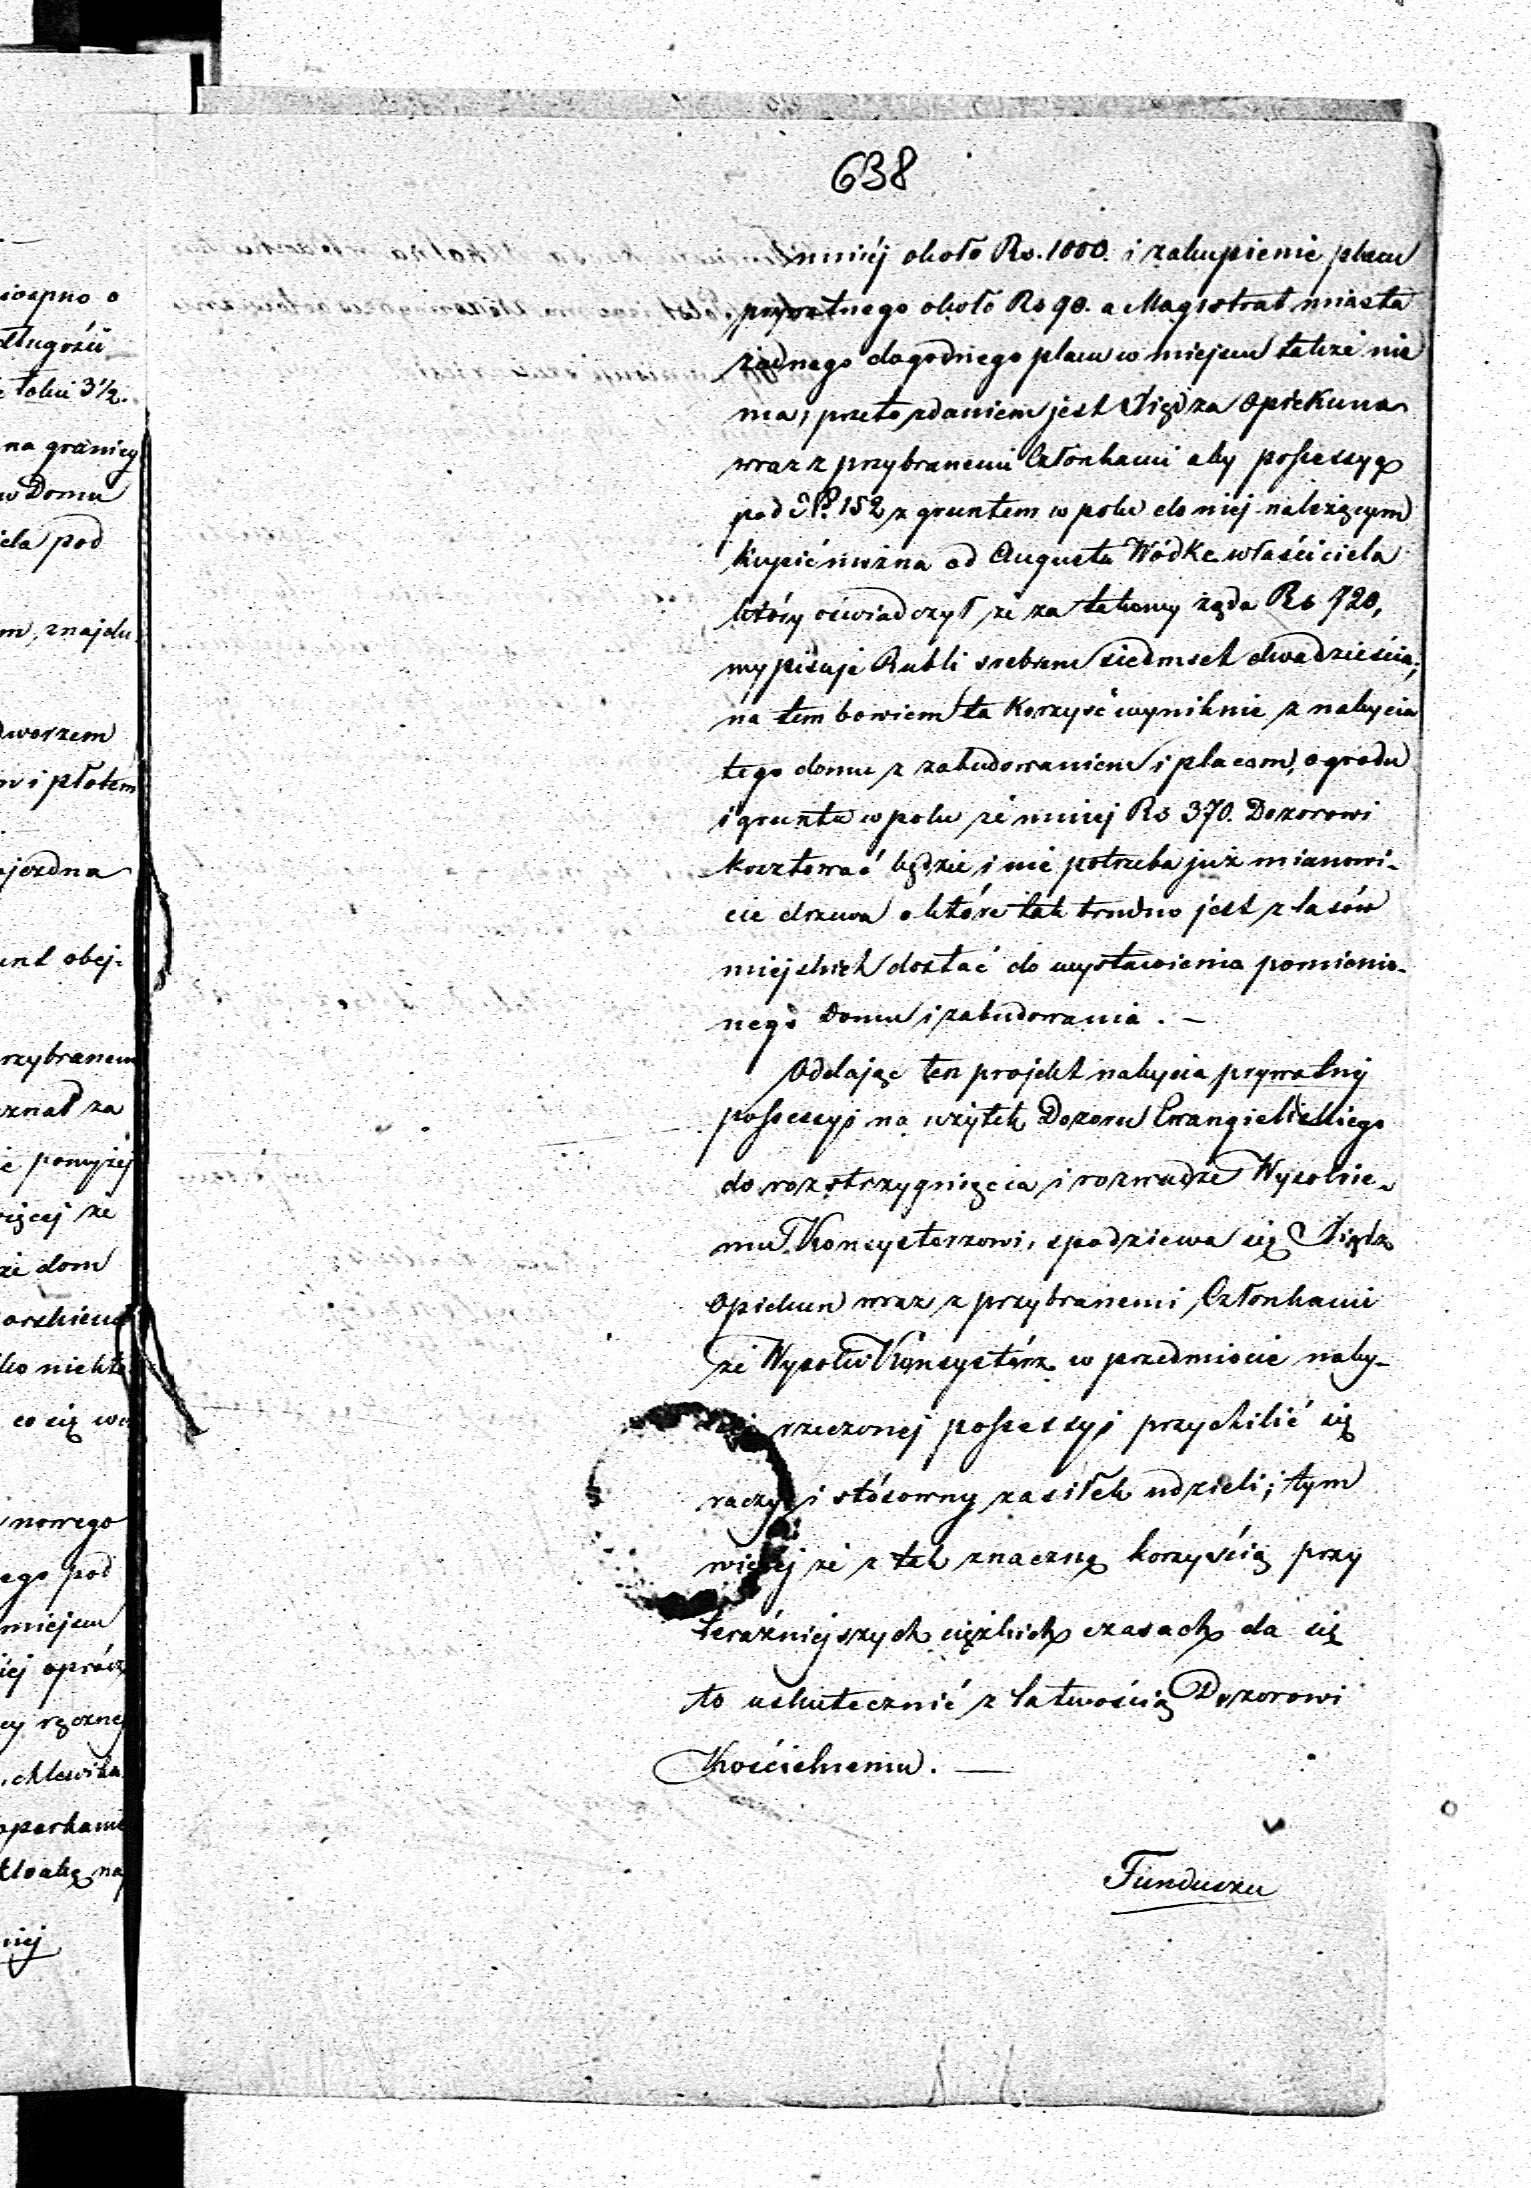 638
mniéj około Rs. 1000. i zakupienie placu
prywatnego około Rs 90. a Magistrat miasta
żadnego dogodnego placu w miejscu także nie
ma, przeto zdaniem jest Xiędza Opiekuna
wraz z przybranemi Członkami aby possessyę
pod Nº 152 z gruntem w polu do niéj należącym
kupić można od Augusta Wódke właściciela
który oświadczył że za takowy żąda Rs 720,
wypisuje Rubli srebrem siedmset dwadzieścia;
na tem bowiem ta korzyść wyniknie z nabycia
tego domu z zabudowaniem i placem, ogrodu
i gruntu w polu że mniej Rs 370. Dozorowi
kosztować będzie i nie potrzeba już mianowi-
cie drzewa o które tak trudno jest z lasów
miejskich dostać do wystawienia pomienio-
nego Domu i zabudowania. —
Oddając ten projekt nabycia prywatnéj
possessyi na użytek Dozoru Ewangielickiego
do rozstrzygnięcia i rozwadze Wysokie-
mu Konsystorzowi, spodziewa się Xiądz
Opiekun wraz z przybranemi Członkami
że Wysoki Konsystórz w przedmiocie naby-
rzeczonej possessyi przychilić się
raczy i stósowny zasiłek udzieli; tym
więcej że z tak znaczną korzyścią przy
teraźniejszych ciężkich czasach da się
to uskutecznić z łatwością Dozorowi
Kościelnemu. —
Funduszu
długości
łokci 3½.
na granicy
w Domu
pod
znajdu
i płotem
obej-
przybranem
uznał za
powyżej
więcej że
że dom
co się
nowego
pod
miejscu
oprócz
ręcznej
chlewika
na
niéj